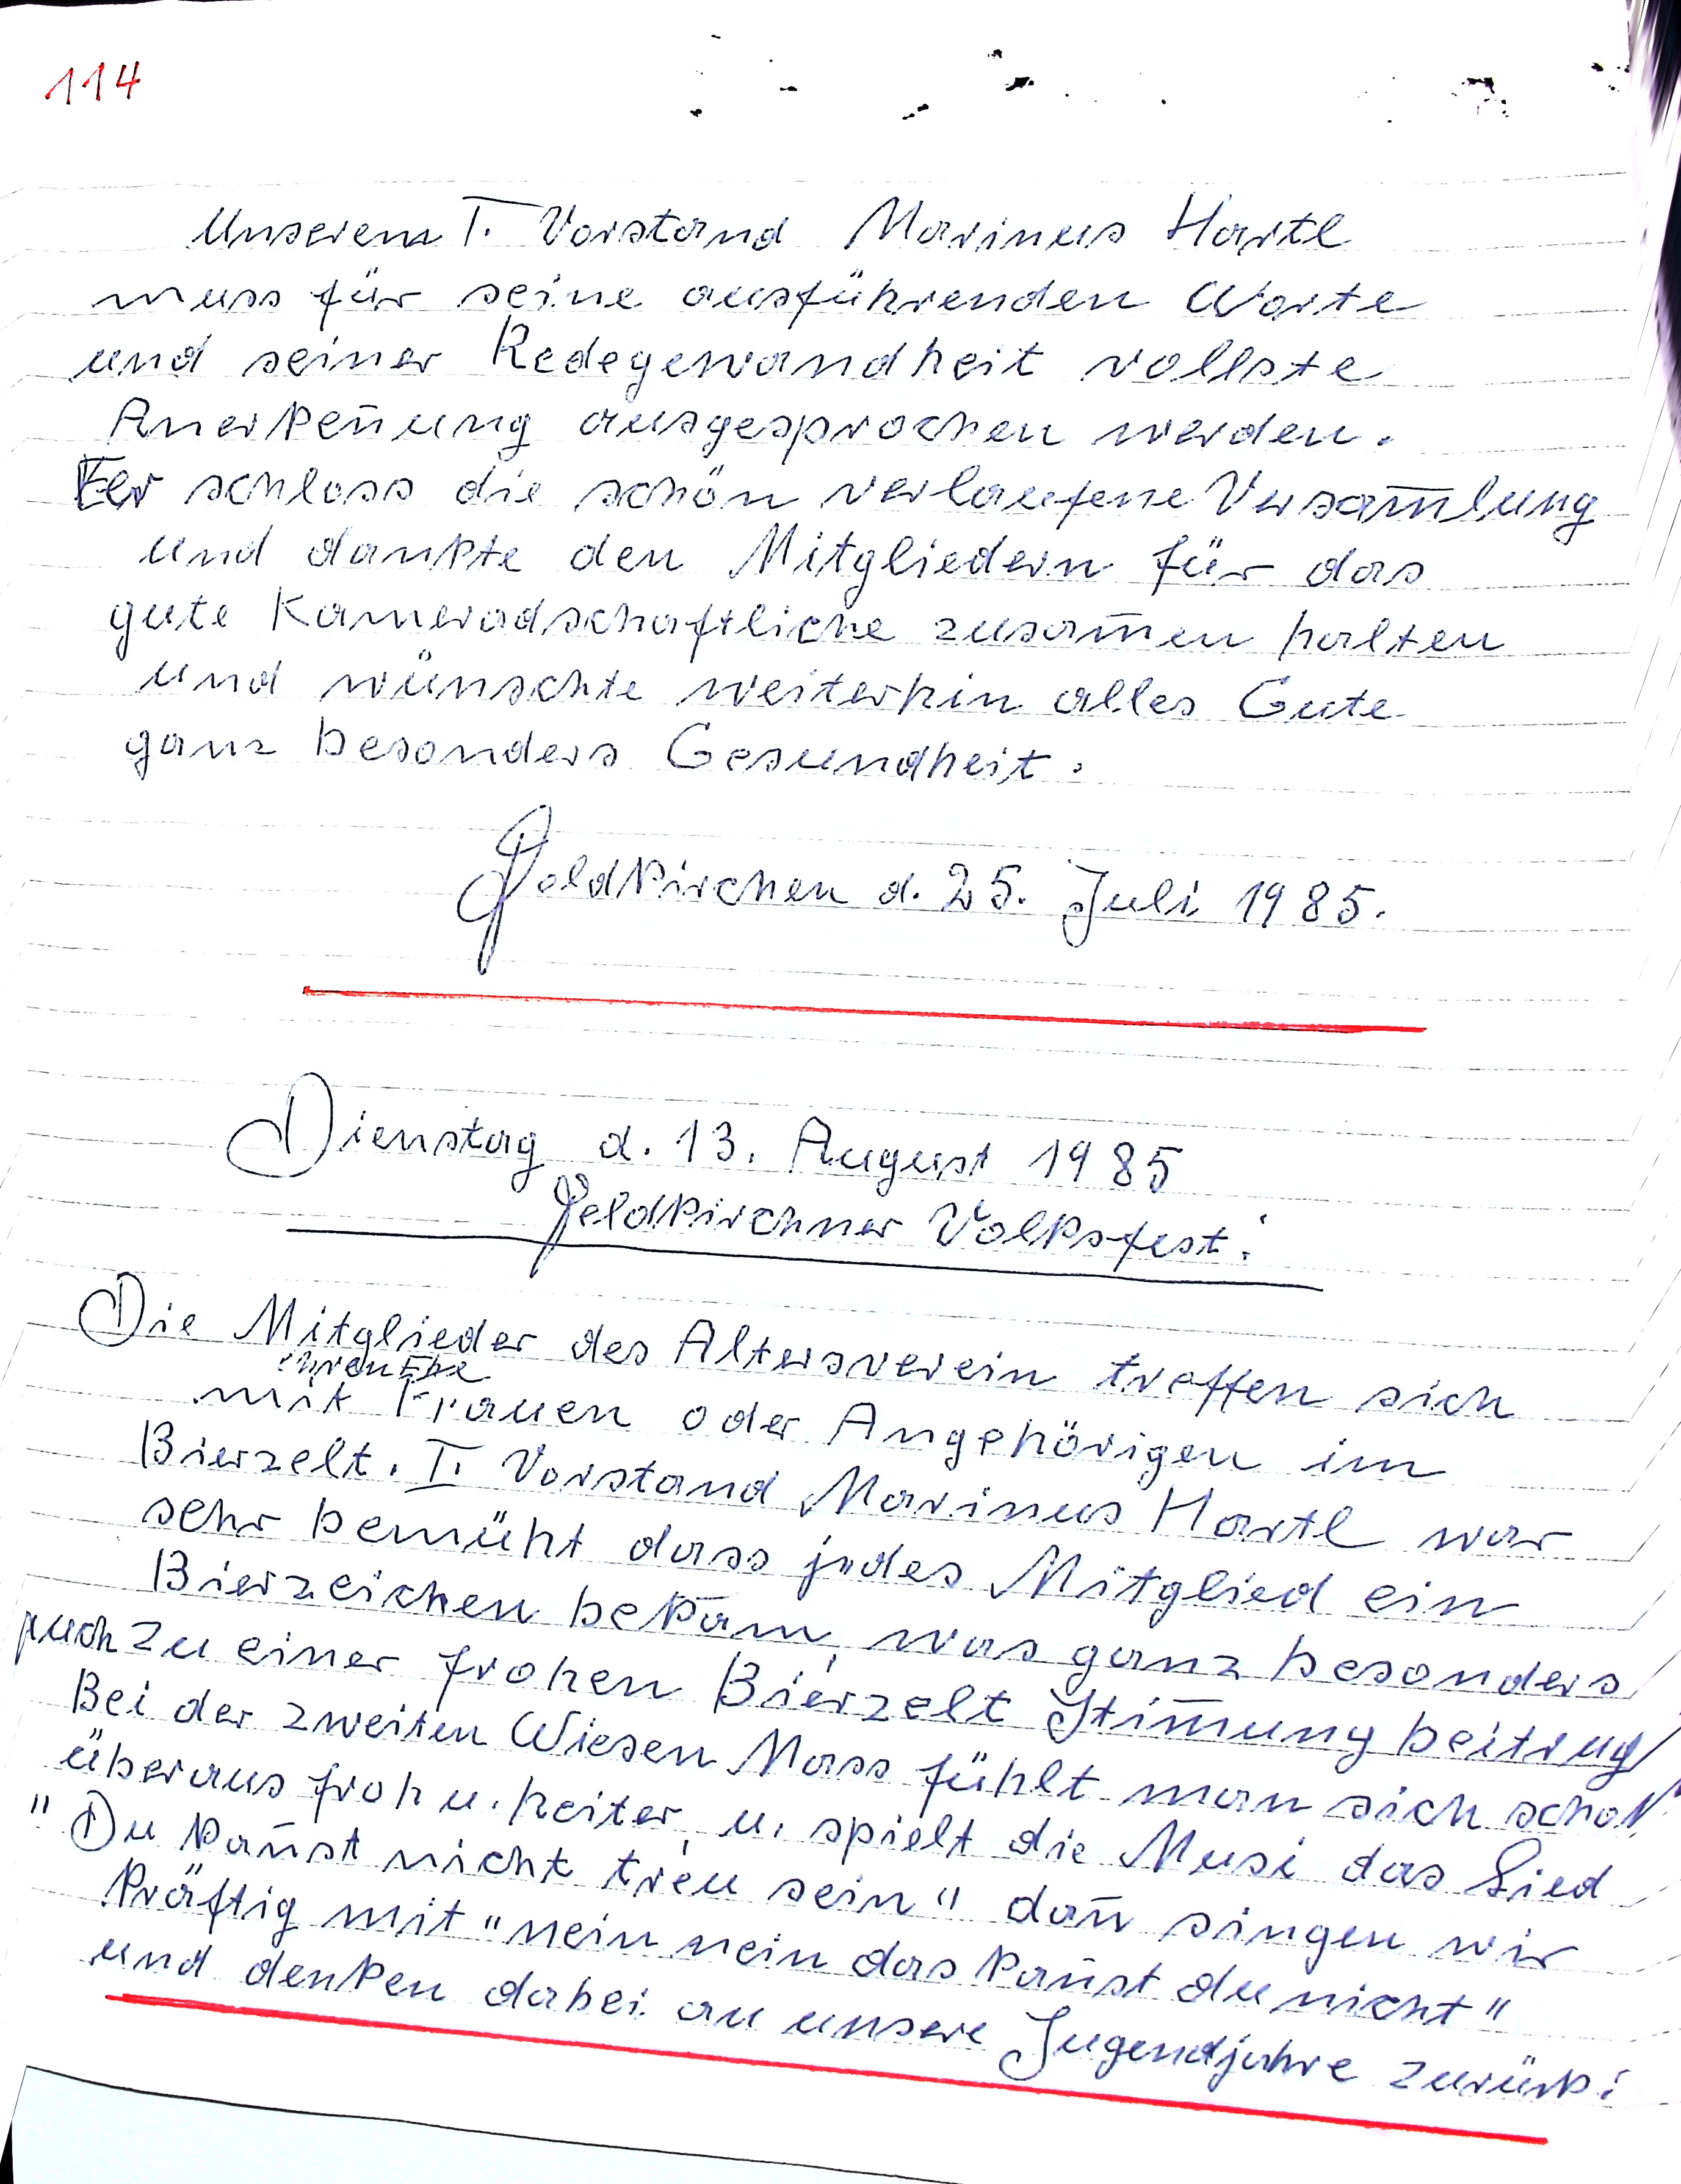 114
Unserem I. Vorstand Marinus Hartl
muss für seine ausführenden Worte
und seiner Redegewandheit vollste
Anerken̄ung ausgesprochen werden.
Er schloss die schön verlaufene Versam̄lung
und dankte den Mitgliedern für das
gute Kameradschaftliche zusam̄en halten
und wünschte weiterhin alles Gute
ganz besonders Gesundheit.
Feldkirchen d. 25. Juli 1985.
Dienstag d. 13. August 1985
Feldkirchner Volksfest!
Die Mitglieder des Altersverein treffen sich
ihren Ehe
mit Frauen oder Angehörigen im
Bierzelt. I. Vorstand Marinus Hartl war
sehr bemüht dass jedes Mitglied ein
Bierzeichen bekam, was ganz besonders
auch zu einer frohen Bierzelt Stim̄ung beitrug
Bei der zweiten Wiesen Mass fühlt man sich schon
überaus froh u. heiter, u. spielt die Musi das Lied
"Du kan̄st nicht treu sein" dan̄ singen wir
kräftig mit "nein nein das kan̄st du nicht"
und denken dabei an unsere Jugendjahre zurück!